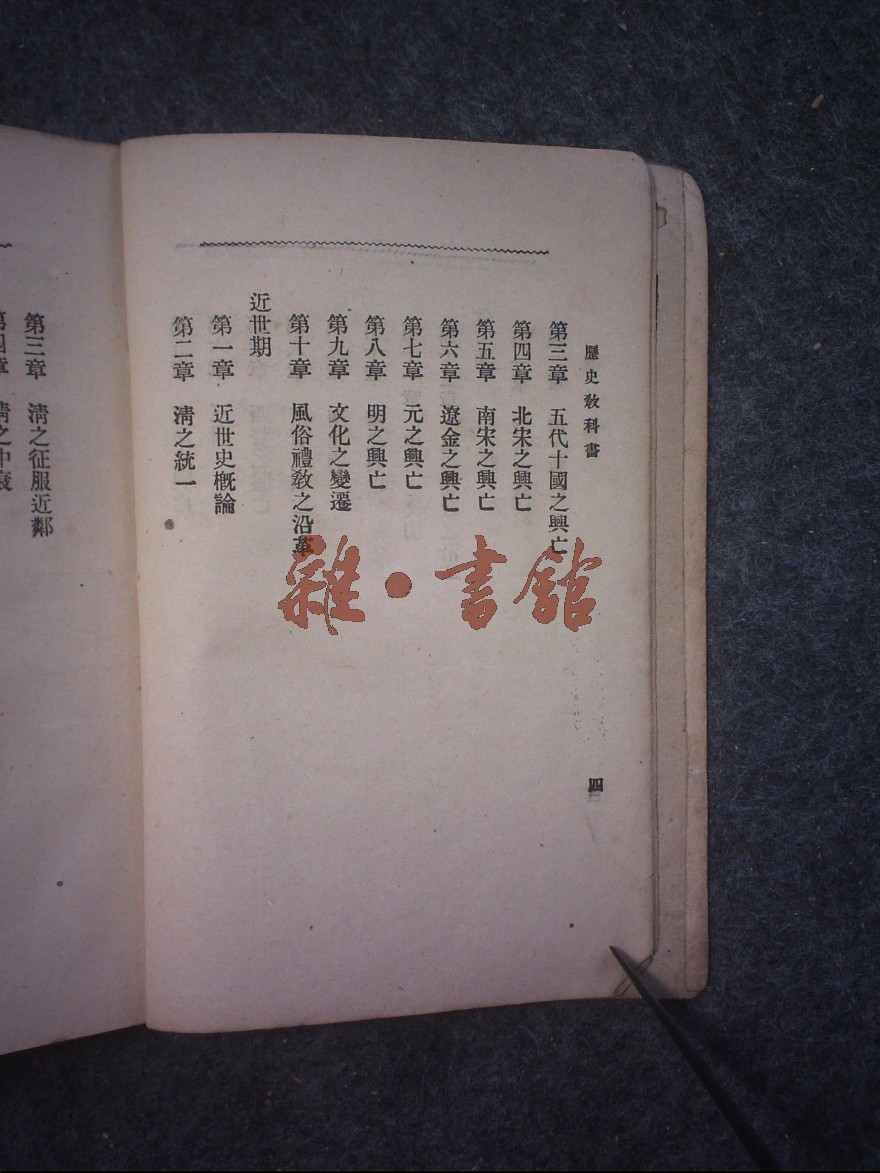 歷史教科書
四
第三章 五代十國之興亡
第四章 北宋之興亡
第五章 南宋之興亡
第六章 遼金之興亡
第七章 元之興亡
第八章 明之興亡
第九章 文化之變遷
第十章 風俗禮教之沿革
近世期
第一章 近世史概論
第二章 淸之統一
第三章 淸之征服近鄰
第四章 淸之中衰
雜·書館